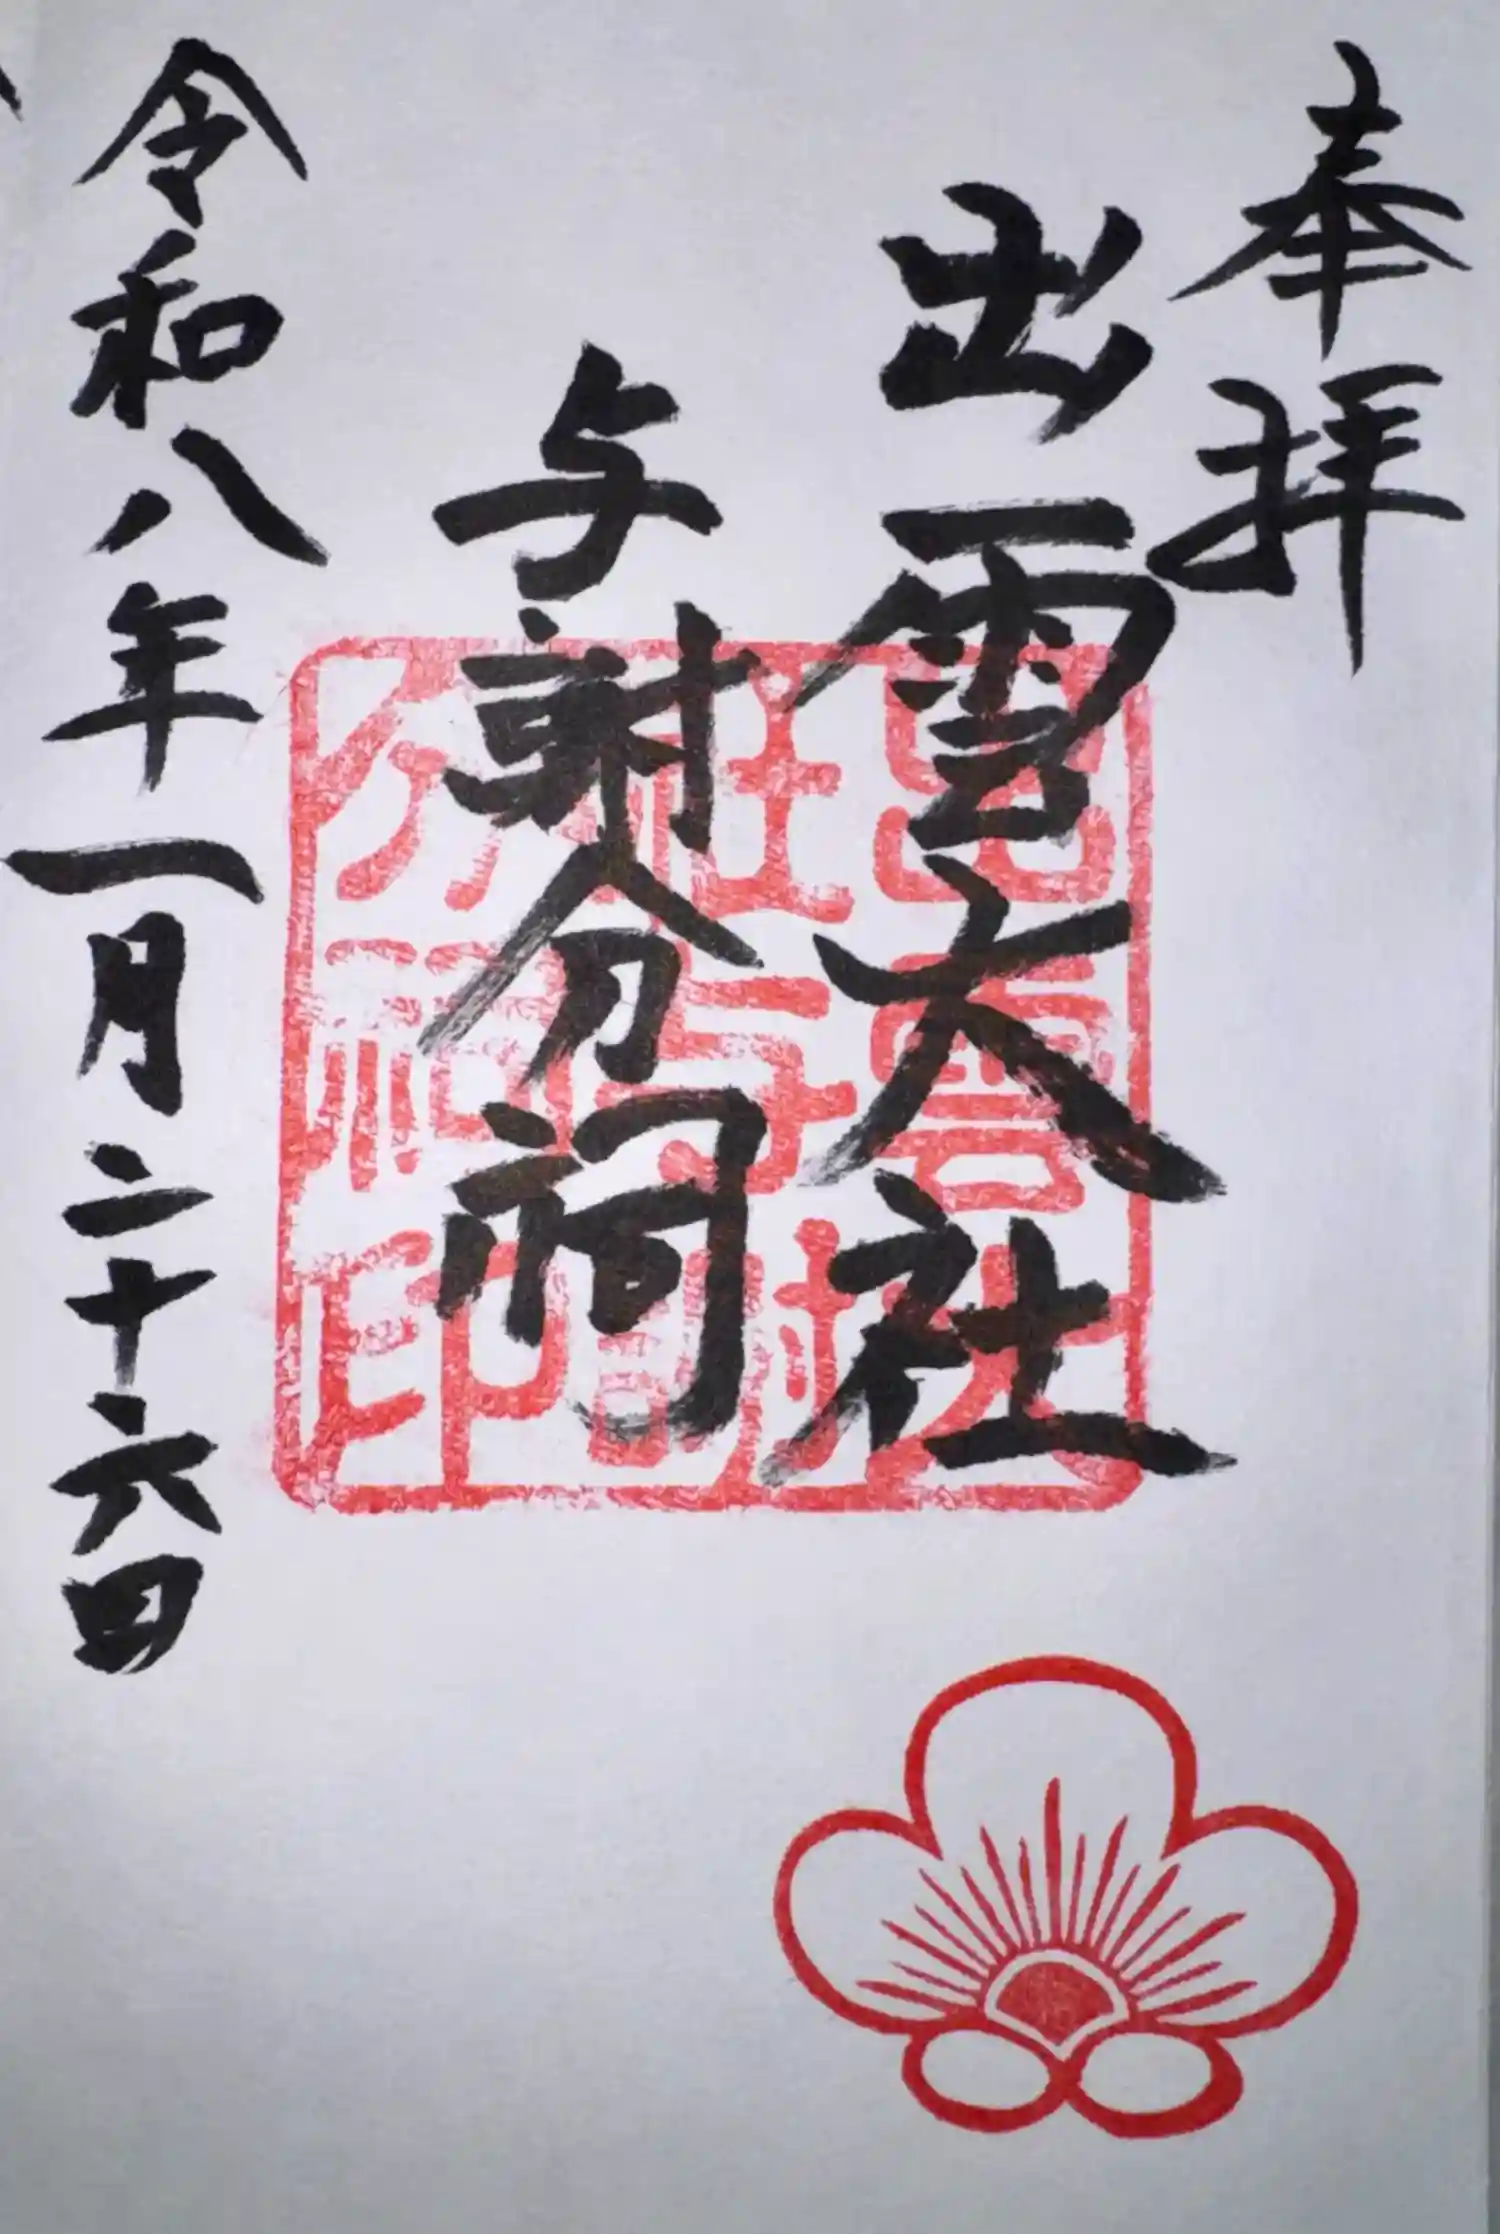 奉拝
出雲大社
与謝分祠
令和八年一月二十六日
出雲大
社与謝
分祠印